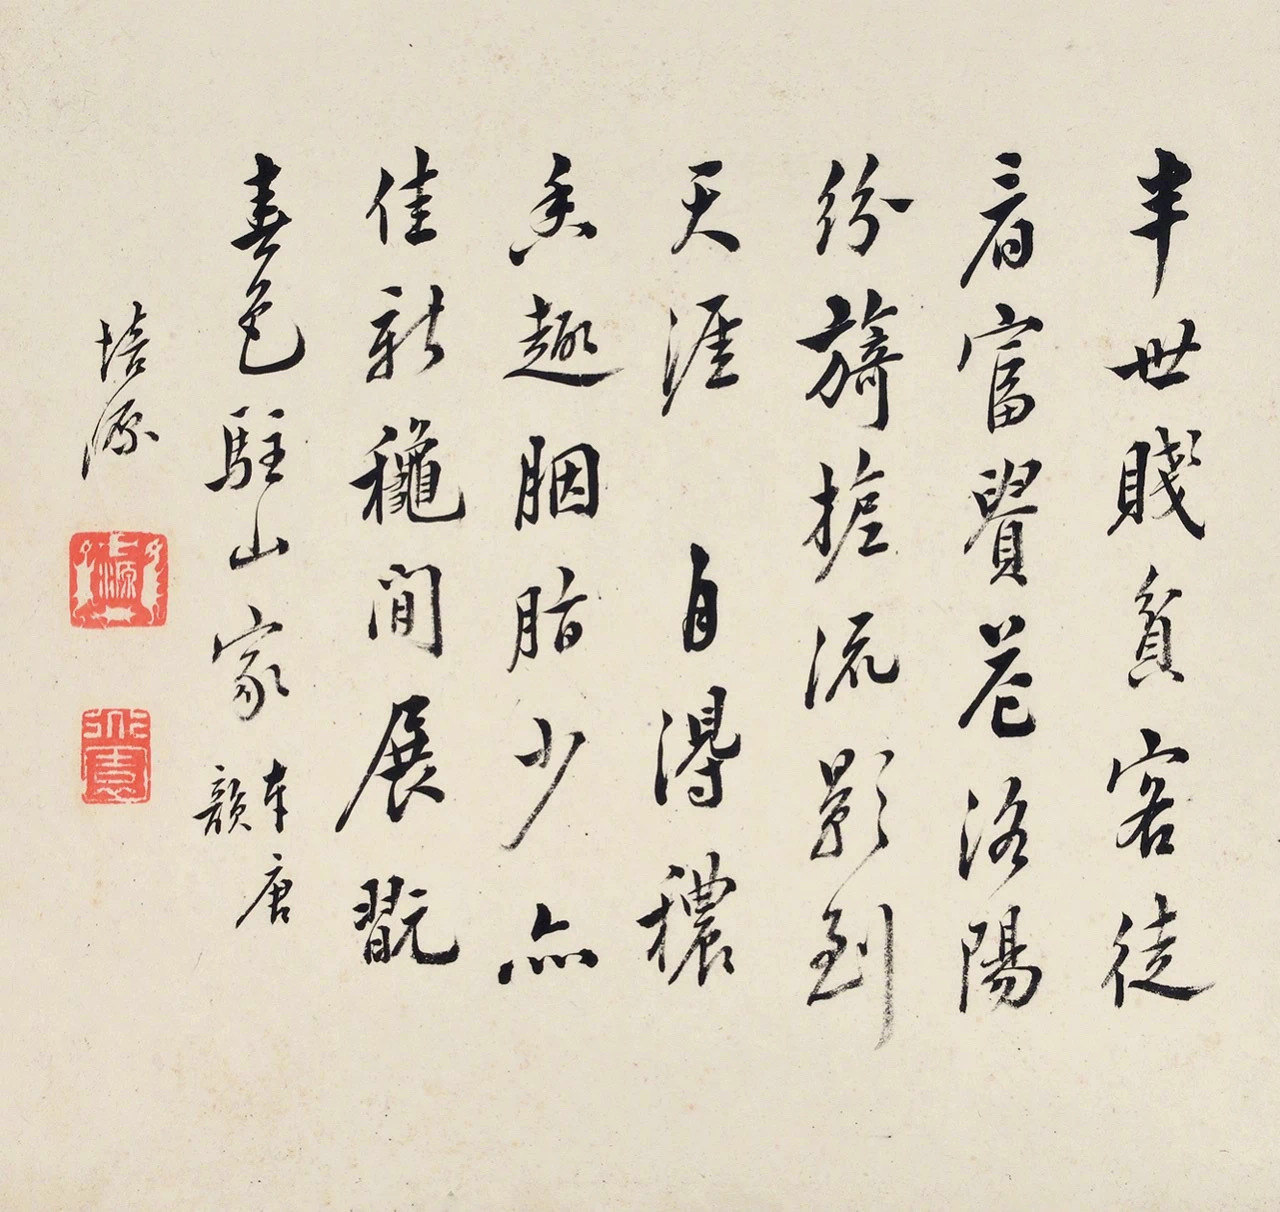 半世賤貧客徒
看富貴花洛陽
紛旖旎流影到
天涯 自得穠
香趣胭脂少亦
佳新龝閒展翫
春色駐山家
唐韻
培源